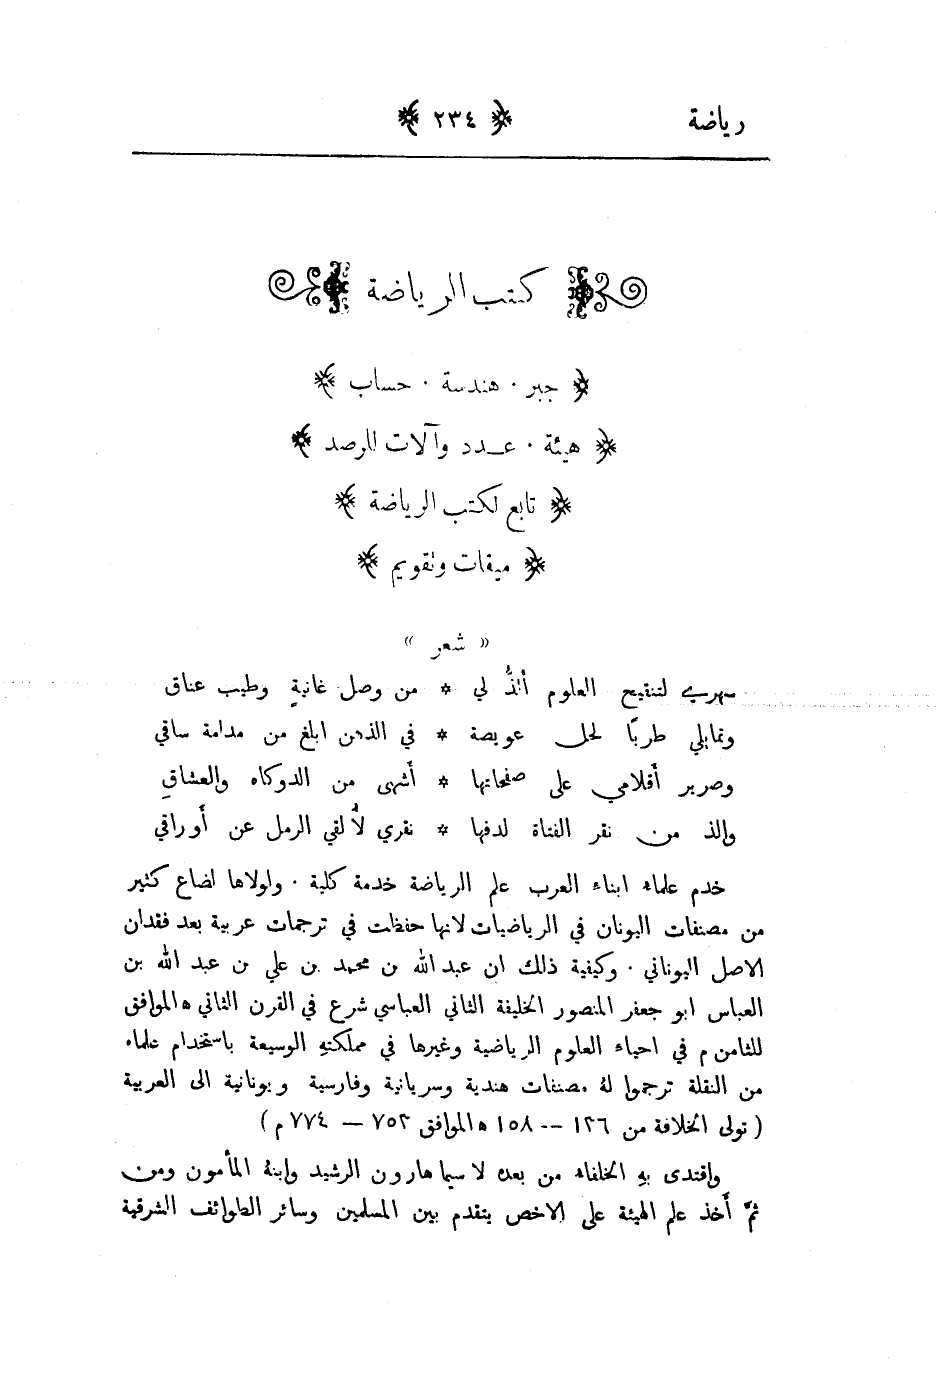 رياضة ﴿ ٢٣٤ ﴾
كتب الرياضة
﴿ جبر · هندسة · حساب ﴾
﴿ هيئة · عدد وآلات للرصد ﴾
﴿ تابع لكتب الرياضة ﴾
﴿ ميقات وتقويم ﴾
« شعر »
سهري لتنقيح العلوم أَلذُّ لي * من وصل غانيةٍ وطيب عناق
وتمايلي طربًا لحل عويصة * في الذهن ابلغ من مدامة ساقي
وصرير أقلامي على صفحاتها * أشهى من الدوكاه والعشاقِ
والذ من نقر الفتاة لدفها * نقري لأُلقي الرمل عن أوراقي
خدم علماء ابناء العرب علم الرياضة خدمة كلية · ولولاها لضاع كثير
من مصنفات اليونان في الرياضيات لانها حفظت في ترجمات عربية بعد فقدان
الاصل اليوناني · وكيفية ذلك ان عبد الله بن محمد بن علي بن عبد الله بن
العباس ابو جعفر المنصور الخليفة الثاني العباسي شرع في القرن الثاني ه الموافق
للثامن م في احياء العلوم الرياضية وغيرها في مملكتهِ الوسيعة باستخدام علماء
من النقلة ترجموا لهُ مصنفات هندية وسريانية وفارسية ويونانية الى العربية
( تولى الخلافة من ١٣٦ -- ١٥٨ ه الموافق ٧٥٣ — ٧٧٤ م )
واقتدى بهِ الخلفاء من بعده لا سيما هارون الرشيد وابنهُ المأمون ومن
ثمَّ أَخذ علم الهيئة على الاخص يتقدم بين المسلمين وسائر الطوائف الشرقية